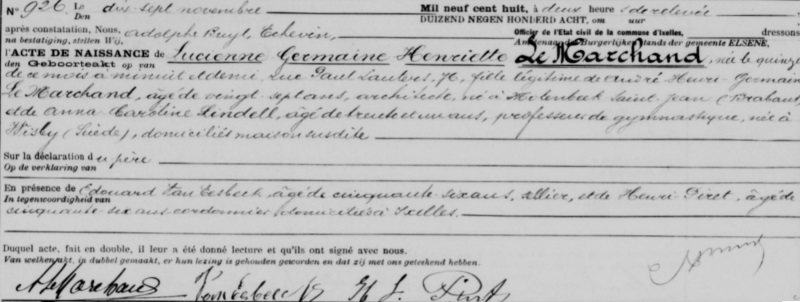 No 926. Le dix-sept novembre Mil neuf cent huit, à deux heures de relevée
Den DUIZEND NEGEN HONDERD ACHT, om uur
après constatation, Nous, Adolphe Buyl, Echevin, Officier de l'Etat civil de la commune d'Ixelles, dressons
na bestatiging, stellen Wij, Ambtenaar des Burgerlijken Stands der gemeente ELSENE,
l'ACTE DE NAISSANCE de Lucienne Germaine Henriette Le Marchand, née le quinze
den Geboorteakt op van
de ce mois à minuit et demi, rue Paul Lauters, 76, fille légitime de André Henri Germain
Le Marchand, âgé de vingt-sept ans, architecte, né à Molenbeek Saint-Jean (Brabant)
et de Anna Caroline Lindell, âgée de trente et un ans, professeur de gymnastique, née à
Wisby (Suède), domiciliés maison susdite
Sur la déclaration du père
Op de verklaring van
En présence de Edouard Van Eesbeek, âgé de cinquante-six ans, sellier, et de Henri Piret, âgé de
In tegenwoordigheid van
cinquante-six ans cordonnier domiciliés à Ixelles.
Duquel acte, fait en double, il leur a été donné lecture et qu'ils ont signé avec nous.
Van welken akt, in dubbel gemaakt, er hun lezing is gehouden geworden en dat zij met ons geteekend hebben.
A Le Marchand Van Eesbeek H J Piret